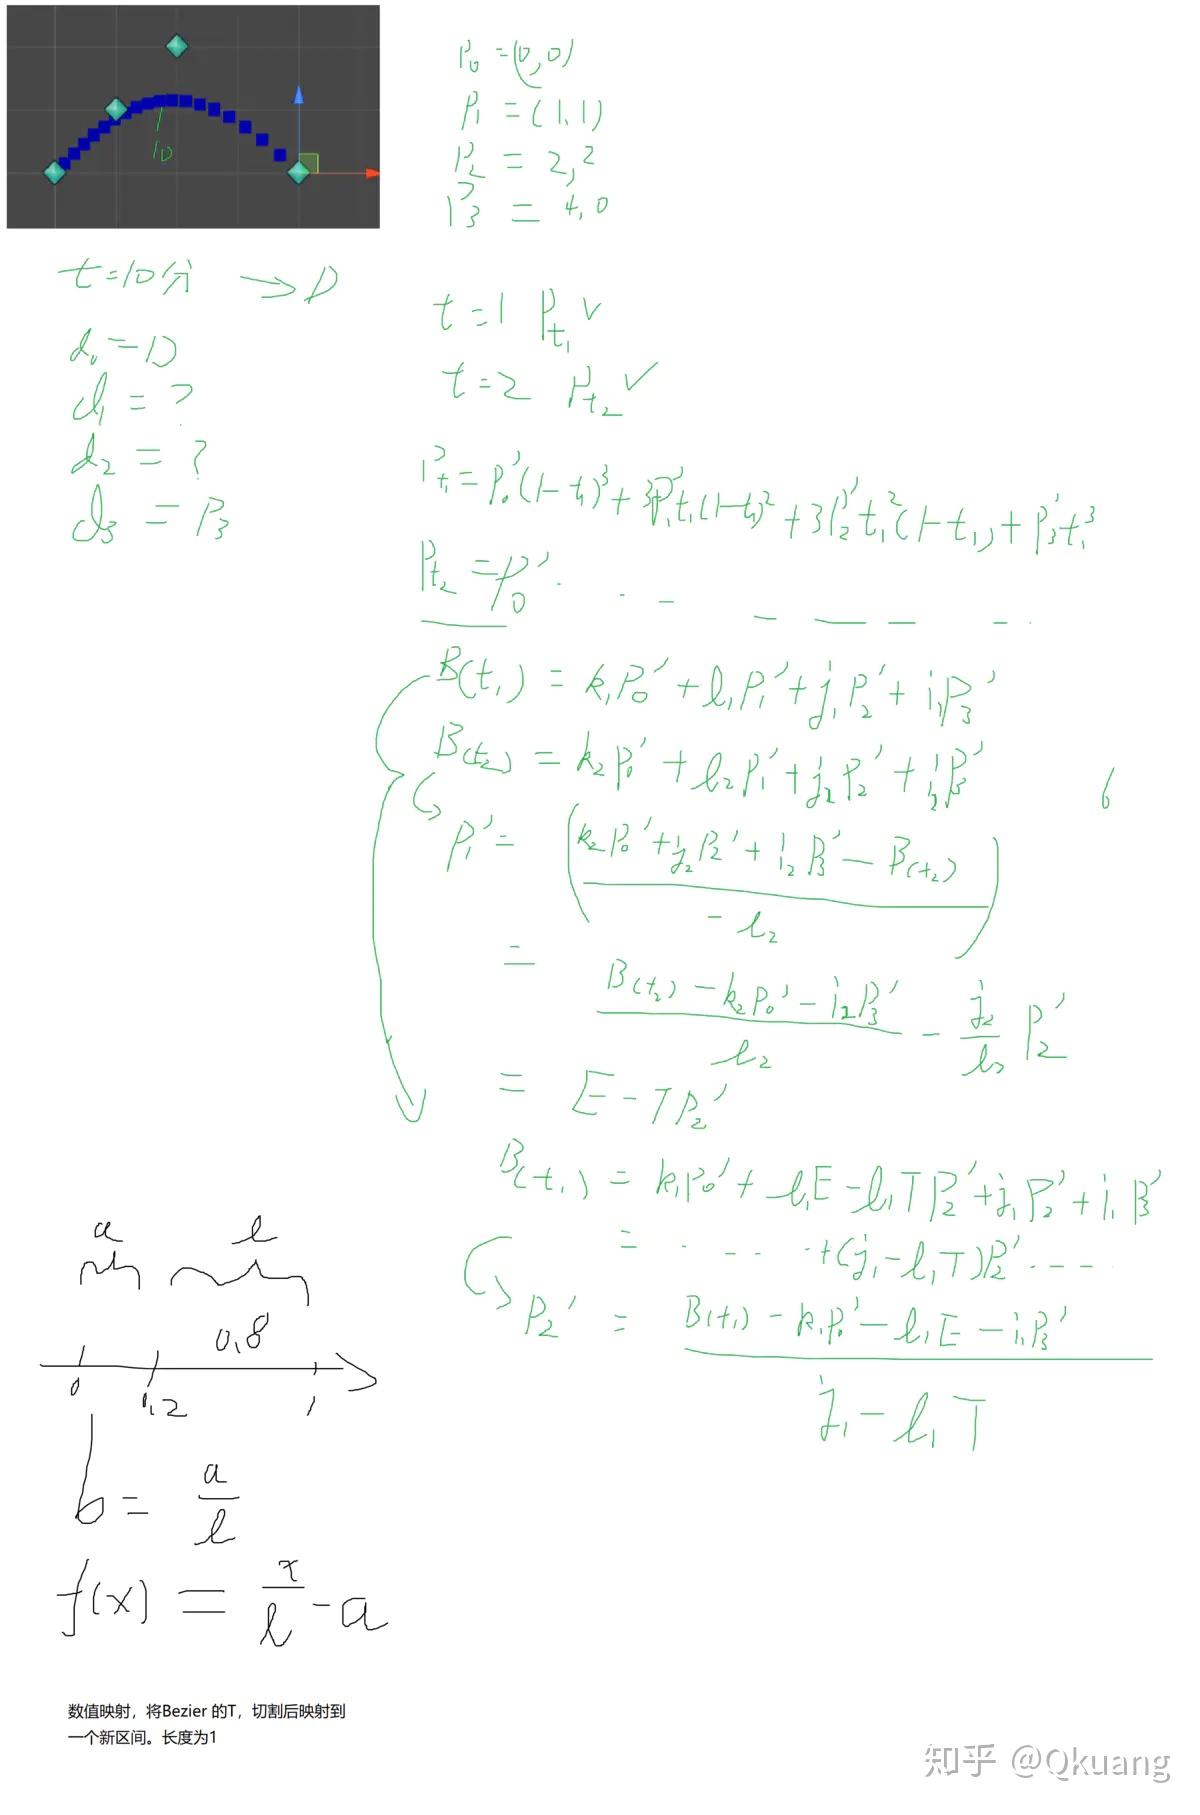 10
P₀ = (0,0)
P₁ = (1,1)
P₂ = 2,2
P₃ = 4,0
t=10分 → D
d₀ = D
d₁ = ?
d₂ = ?
d₃ = P₃
t=1 Pt₁ √
t=2 Pt₂ √
Pt₁ = P₀'(1-t₁)³ + 3P₁'t₁(1-t₁)² + 3P₂'t₁²(1-t₁) + P₃'t₁³
Pt₂ = P₀' · · - - — — - ·
B(t₁) = k₁P₀' + l₁P₁' + j₁P₂' + i₁P₃'
B(t₂) = k₂P₀' + l₂P₁' + j₂P₂' + i₂P₃'
6
P₁' = ((k₂P₀' + j₂P₂' + i₂P₃' - B(t₂)) / -l₂)
= (B(t₂) - k₂P₀' - i₂P₃') / l₂ - j₂/l₂ P₂'
= E - TP₂'
B(t₁) = k₁P₀' + l₁E - l₁TP₂' + j₁P₂' + i₁P₃'
= · - - · + (j₁ - l₁T)P₂' - - - -
P₂' = (B(t₁) - k₁P₀' - l₁E - i₁P₃') / (j₁ - l₁T)
a l
0.8
0 0.2 1
b = a/l
f(x) = x/l - a
数值映射，将Bezier 的T，切割后映射到
一个新区间。长度为1
知乎 @Qkuang